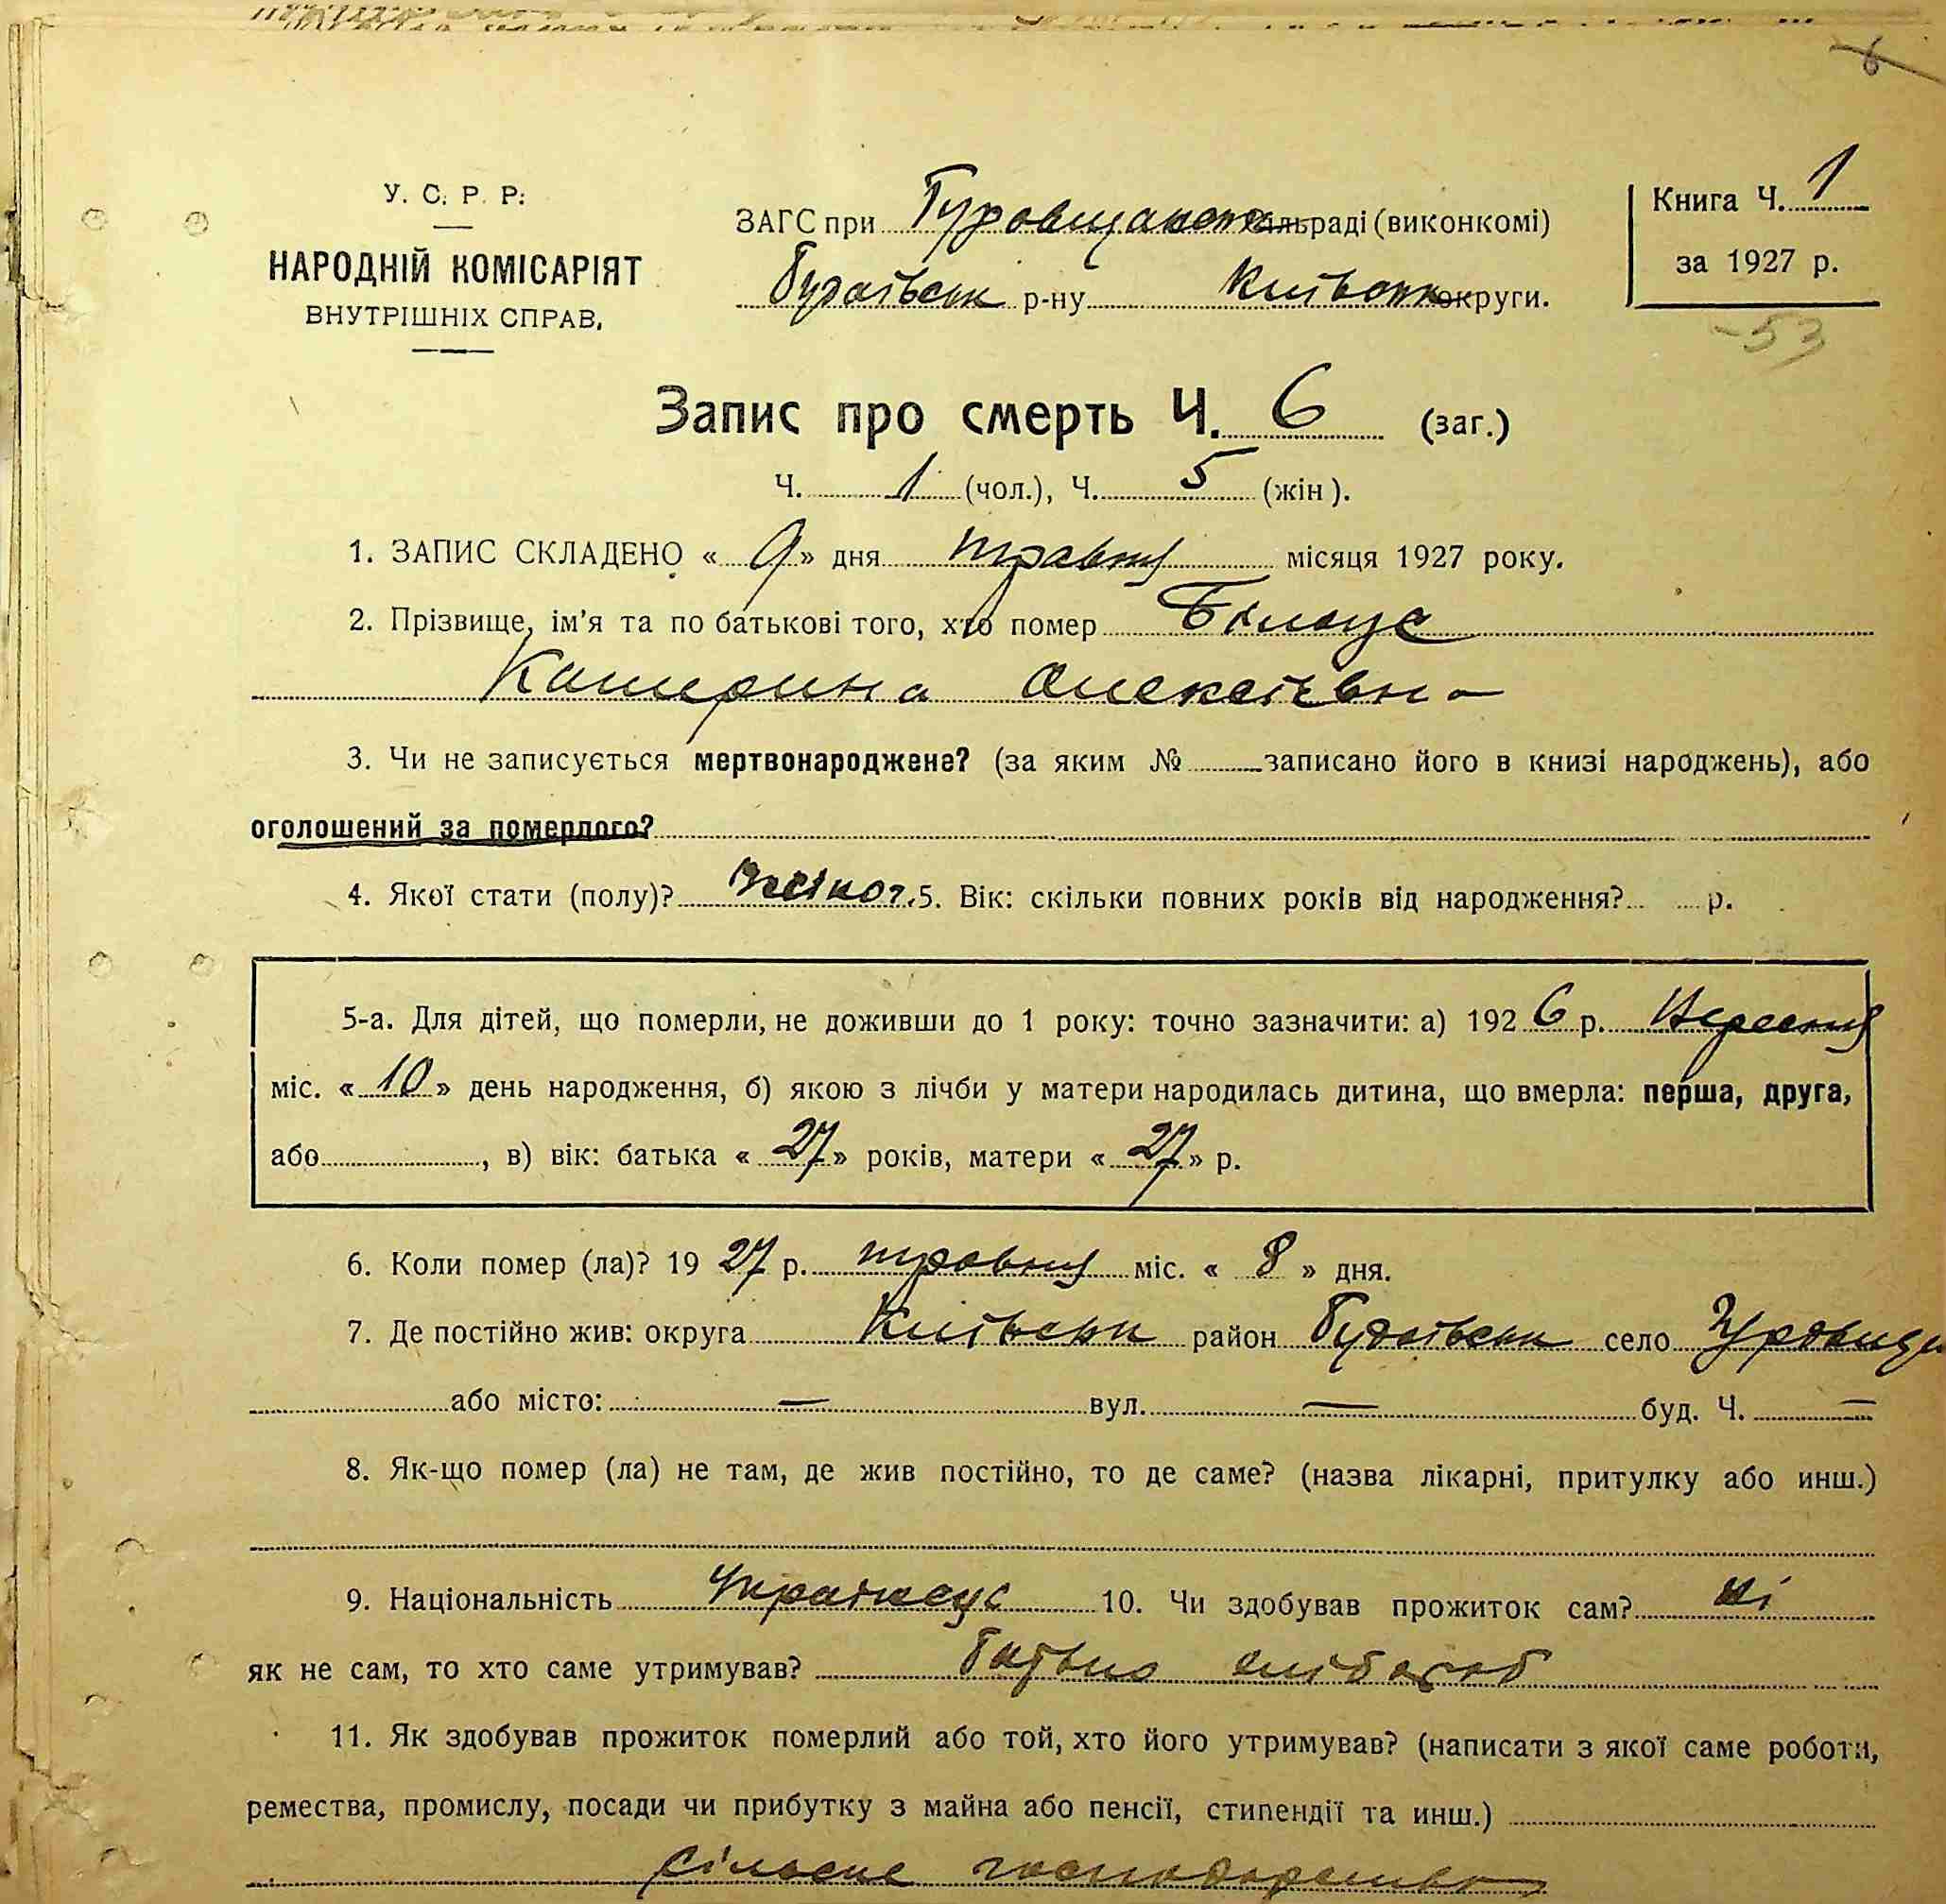 6
У. С. Р. Р.
НАРОДНІЙ КОМІСАРІЯТ
ВНУТРІШНІХ СПРАВ.
ЗАГС при Гуровщанськ сільраді (виконкомі)
Будаївськ р-ну Київськ округи.
Книга Ч. 1
за 1927 р.
53
Запис про смерть Ч. 6 (заг.)
Ч. 1 (чол.), Ч. 5 (жін).
1. ЗАПИС СКЛАДЕНО « 9 » дня травня місяця 1927 року.
2. Прізвище, ім'я та по батькові того, хто помер Білоус
Катерина Олексіївна
3. Чи не записується мертвонароджене? (за яким № записано його в книзі народжень), або
оголошений за померлого?
4. Якої стати (полу)? жіноч. 5. Вік: скільки повних років від народження? р.
5-а. Для дітей, що померли, не доживши до 1 року: точно зазначити: а) 192 6 р. Вересня
міс. « 10 » день народження, б) якою з лічби у матери народилась дитина, що вмерла: перша, друга,
або , в) вік: батька « 27 » років, матери « 27 » р.
6. Коли помер (ла)? 19 27 р. травня міс. « 8 » дня.
7. Де постійно жив: округа Київськ район Будаївськ село Гуровщи
або місто: — вул. — буд. Ч. —
8. Як-що помер (ла) не там, де жив постійно, то де саме? (назва лікарні, притулку або инш.)
9. Національність 10. Чи здобував прожиток сам? ні
як не сам, то хто саме утримував? батько хлібороб
11. Як здобував прожиток померлий або той, хто його утримував? (написати з якої саме роботи,
ремества, промислу, посади чи прибутку з майна або пенсії, стипендії та инш.)
сільске господарство